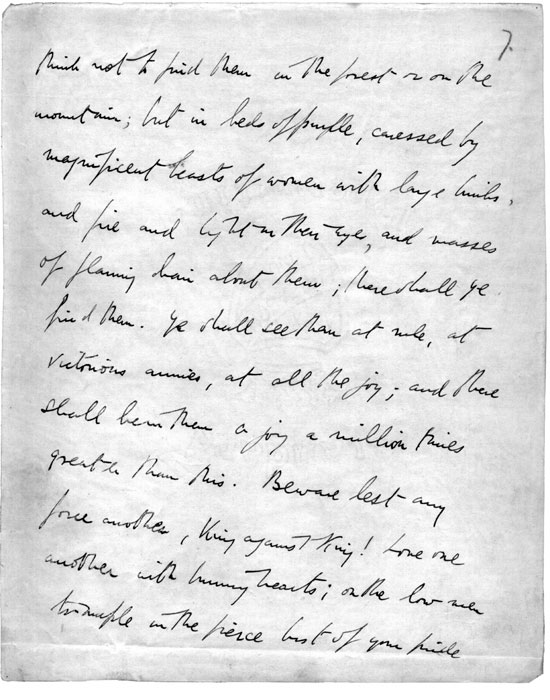 7.
think not to find them in the forest or on the
mountain; but in beds of purple, caressed by
magnificent beasts of women with large limbs,
and fire and light in their eyes, and masses
of flaming hair about them; there shall ye
find them. Ye shall see them at rule, at
victorious armies, at all the joy; and there
shall be in them a joy a million times
greater than this. Beware lest any
force another, King against King! Love one
another with burning hearts; on the low men
trample in the fierce lust of your pride